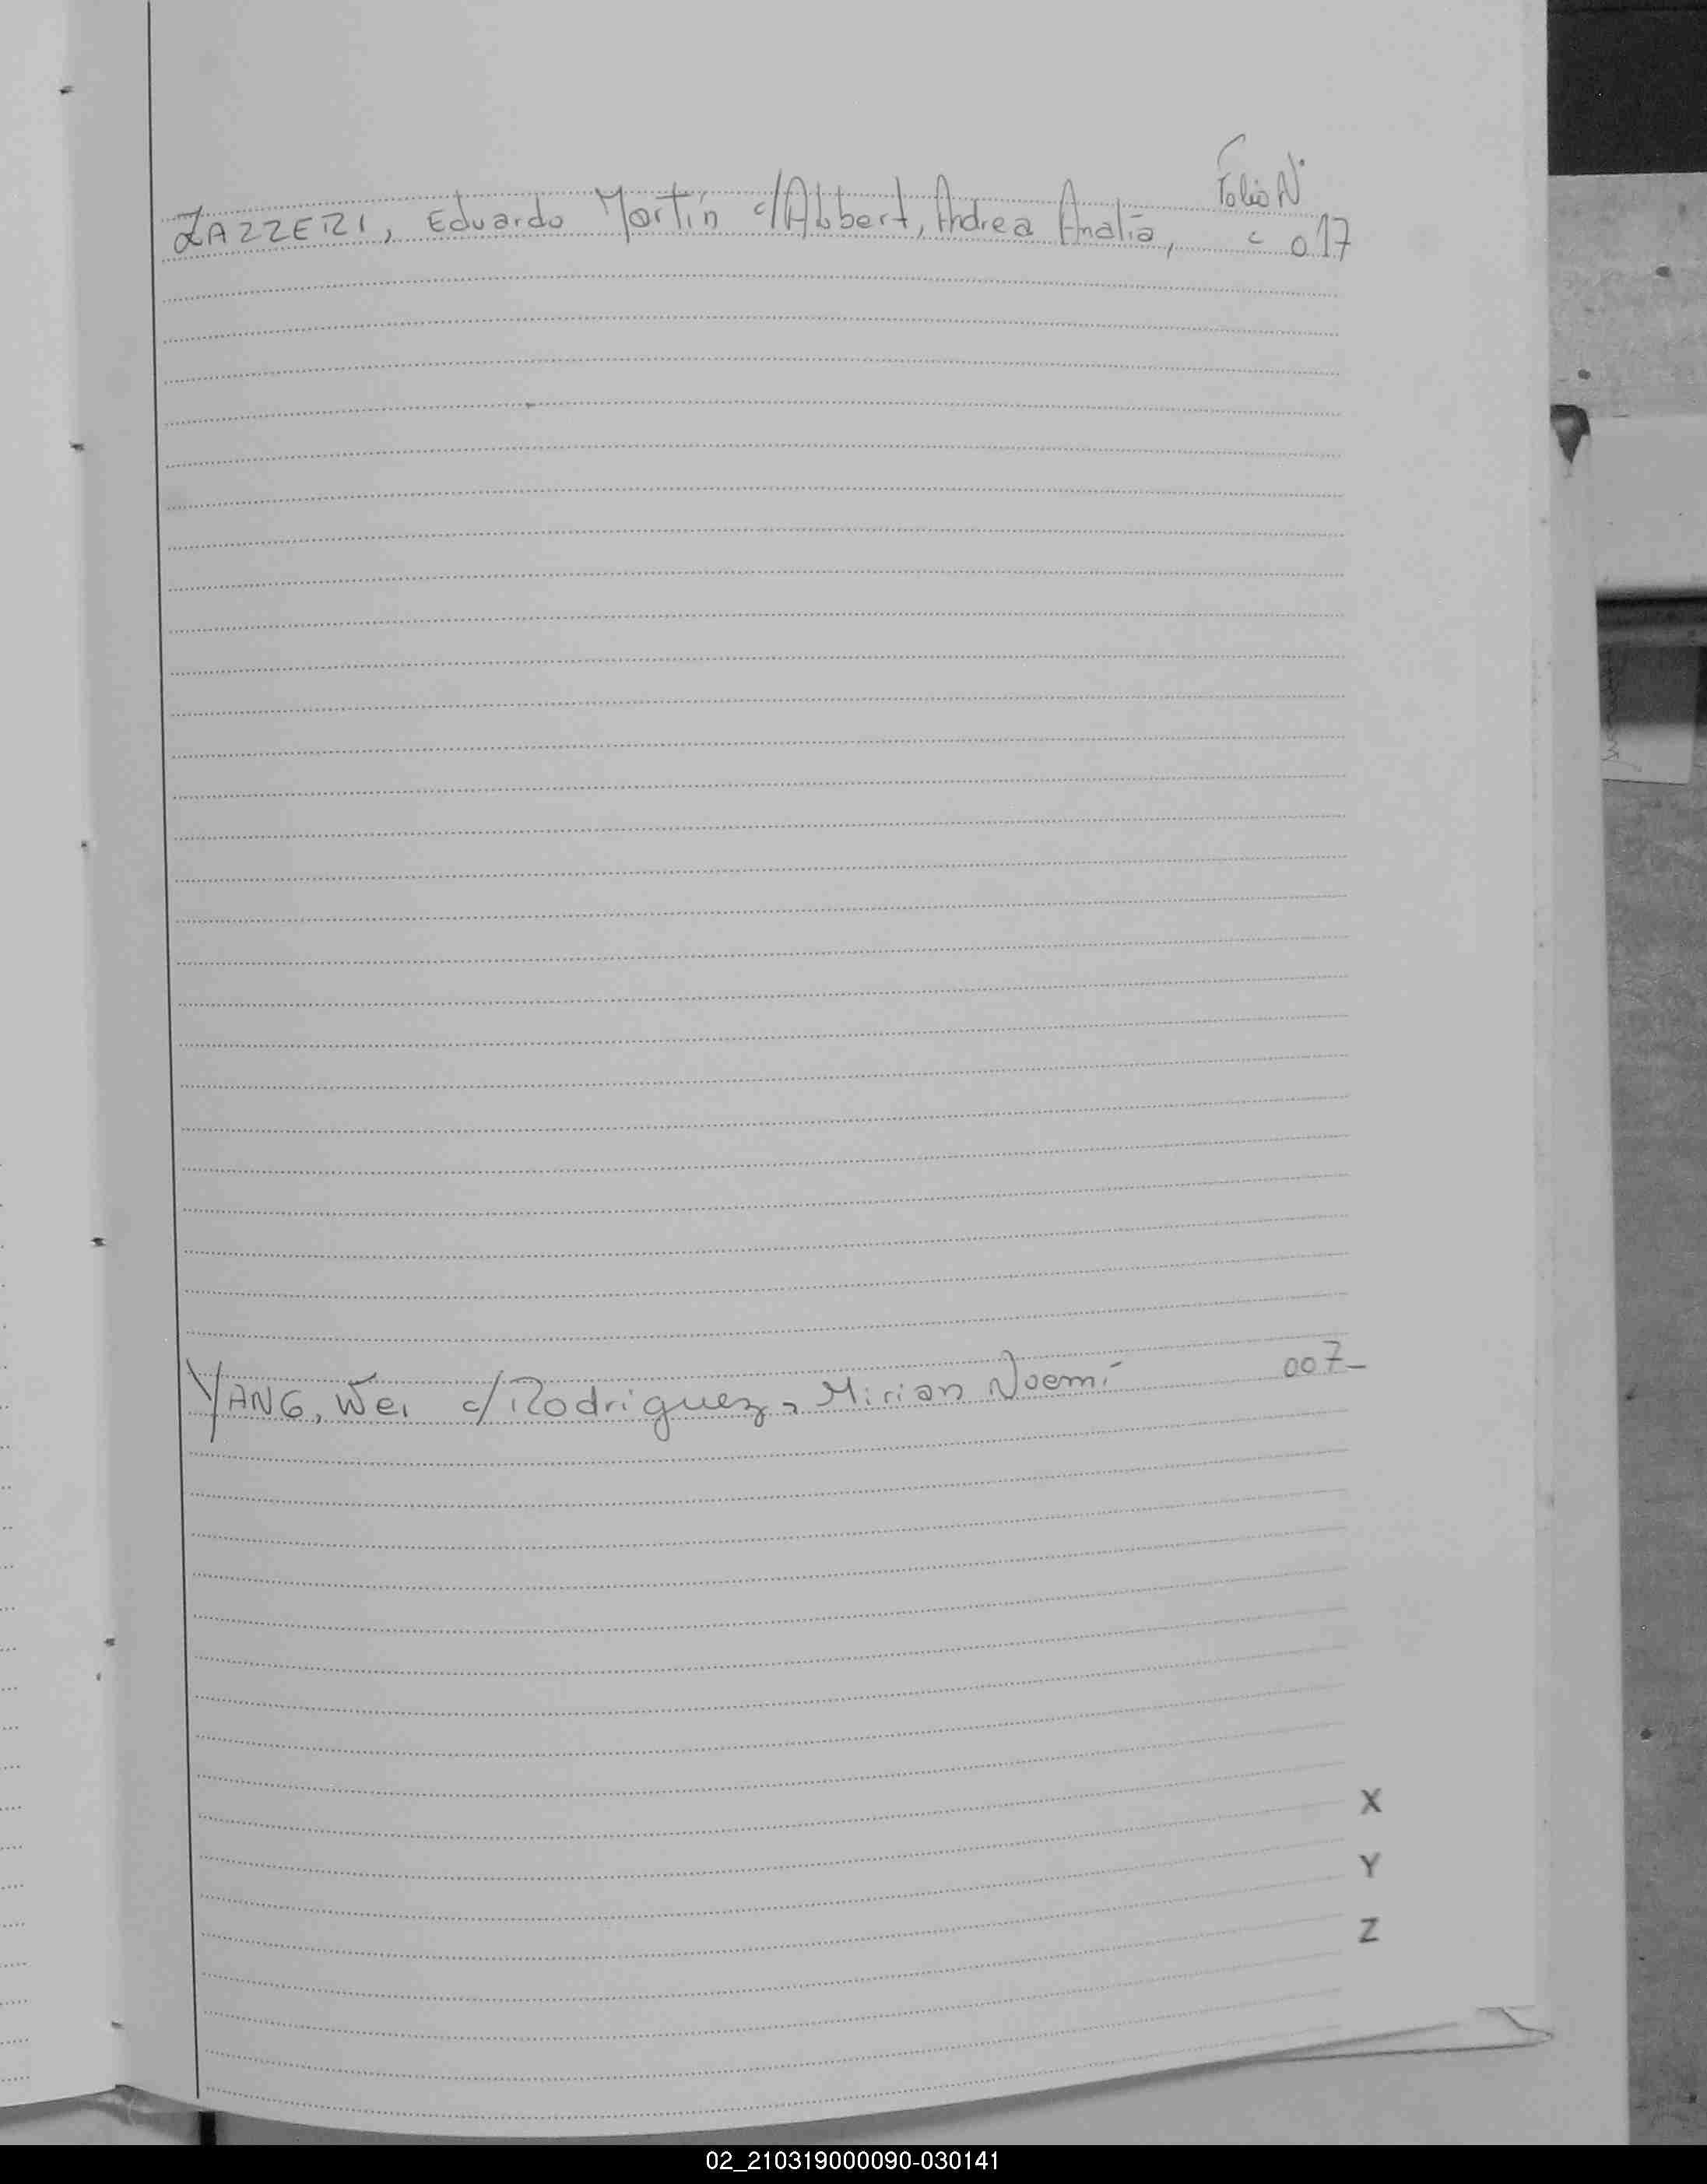 Folio Nº
ZAZZERI, Eduardo Martín c/Abbert, Andrea Analía, 017
YANG, Wei c/Rodriguez, Mirian Noemí 007-
X
Y
Z
02_210319000090-030141